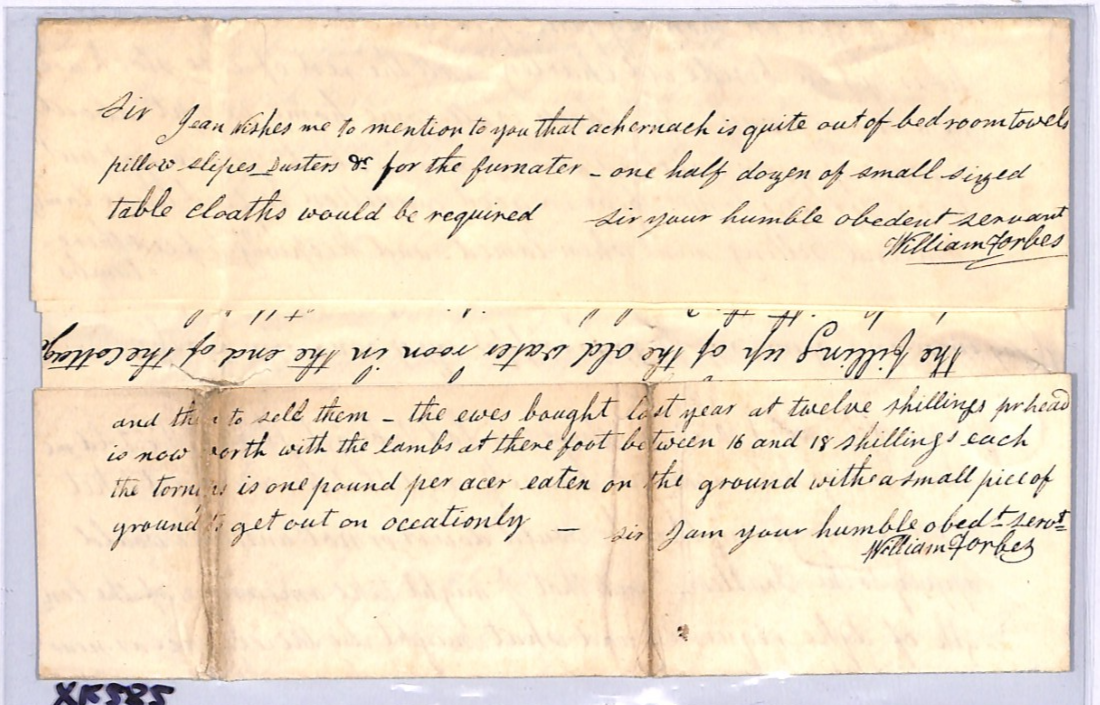 Sir Jean wishes me to mention to you that achernach is quite out of bed room towels
pillow slipes dusters &c for the furnater – one half dozen of small sized
table cloaths would be required sir your humble obedent servant
William Forbes
the filling up of the old water roon in the end of the Cottage
and then to sell them – the ewes bought last year at twelve shillings pr head
is now worth with the lambs at there foot between 16 and 18 shillings each
the is one pound per acer eaten on the ground with a small piece of
ground to get out on occationly – sir I am your humble obedt servt
William Forbes
XK585